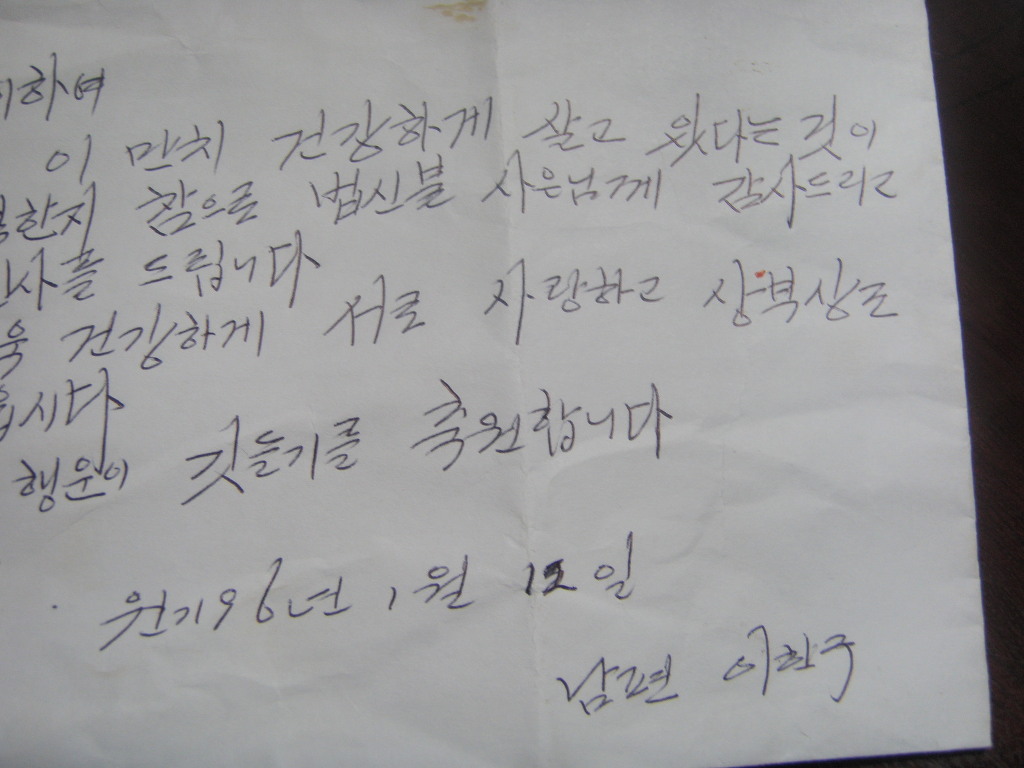 하여
이 만치 건강하게 살고 왔다는 것이
한지 참으로 법신불 사은님께 감사드리고
사를 드립니다
욱 건강하게 서로 사랑하고 상부상조
합시다
행운이 깃들기를 축원합니다
원기96년 1월 12일
남편 이한주